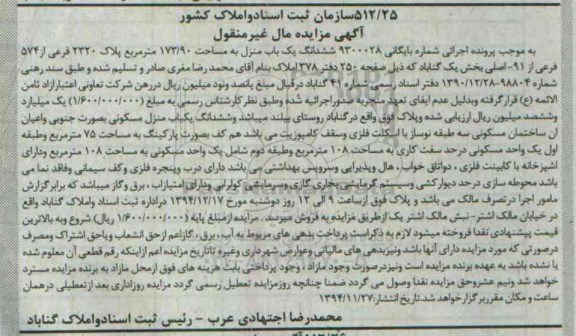 ۵۱۲/۲۵سازمان ثبت اسنادواملاک کشور
آگهی مزایده مال غیرمنقول
به موجب پرونده اجرائی شماره بایگانی ۹۳۰۰۰۲۸ ششدانگ یک باب منزل به مساحت ۱۷۳/۹۰ مترمربع پلاک ۲۳۲۰ فرعی از۵۷۴
فرعی از ۹۱-اصلی بخش یک گناباد که ذیل صفحه ۲۵۰ دفتر ۳۷۸ املاک بنام آقای محمد رضا مقری صادر و تسلیم شده و طبق سند رهنی
شماره ۹۸۸۰۴-۱۳۹۰/۱۲/۲۸ دفتر اسناد رسمی شماره ۴۱ گناباد درقبال مبلغ پانصد ونود میلیون ریال دررهن شرکت تعاونی اعتبارازاد ثامن
الائمه (ع) قرار گرفته وبدلیل عدم ایفای تعهد منجربه صدوراجرائیه شده وطبق نظرکارشناس رسمی به مبلغ (۱/۶۰۰/۰۰۰/۰۰۰) یک میلیارد
وششصد میلیون ریال ارزیابی شده وپلاک فوق واقع درگناباد روستای بیلند میباشد وششدانگ یکباب منزل مسکونی بصورت جنوبی واعیان
ان ساختمان مسکونی سه طبقه نوساز با اسکلت فلزی وسقف کامپوزیت می باشد هم کف بصورت پارکینگ به مساحت ۷۵ مترمربع وطبقه
اول یک واحد مسکونی درحد سفت کاری به مساحت ۱۰۸ مترمربع وطبقه دوم شامل یک واحد مسکونی به مساحت ۱۰۸ مترمربع ودارای
اشپزخانه با کابینت فلزی ، دواتاق خواب ، هال وپذیرایی وسرویس بهداشتی می باشد دارای درب وپنجره فلزی وکف سیمانی وفاقد نما می
باشد محوطه سازی درحد دیوارکشی وسیستم گرمایشی بخاری گازی وسرمایشی کولرابی ودارای امتیازاب ، برق وگاز میباشد که برابرگزارش
مامور اجرا درتصرف مالک می باشد و پلاک فوق ازساعت ۹ الی ۱۲ روز دوشنبه مورخ ۱۳۹۴/۱۲/۱۷ دراداره ثبت اسناد واملاک گناباد واقع
در خیابان مالک اشتر-نبش مالک اشتر یک ازطریق مزایده به فروش میرسد . مزایده ازمبلغ پایه (۱/۶۰۰/۰۰۰/۰۰۰ ریال) شروع وبه بالاترین
قیمت پیشنهادی نقدا فروخته میشود لازم به ذکراست پرداخت بدهی های مربوط به آب ، برق ، گازاعم ازحق انشعاب ویاحق اشتراک ومصرف
درصورتی که مورد مزایده دارای آنها باشد ونیزبدهی های مالیاتی وعوارض شهرداری وغیره تاتاریخ مزایده اعم ازاینکه رقم قطعی آن معلوم شده
یا نشده باشد به عهده برنده مزایده است ونیزدرصورت وجود مازاد ، وجوه پرداختی بابت هزینه های فوق ازمحل مازاد به برنده مزایده مسترد
خواهد شد ونیم عشروحق مزایده نقدا وصول می گردد ضمنا چنانچه روزمزایده تعطیل رسمی گردد مزایده روزاداری بعد ازتعطیلی درهمان
ساعت و مکان مقرربرگزار خواهد شد.تاریخ انتشار:۱۳۹۴/۱۱/۲۷
محمدرضا اجتهادی عرب - رئیس ثبت اسنادواملاک گناباد